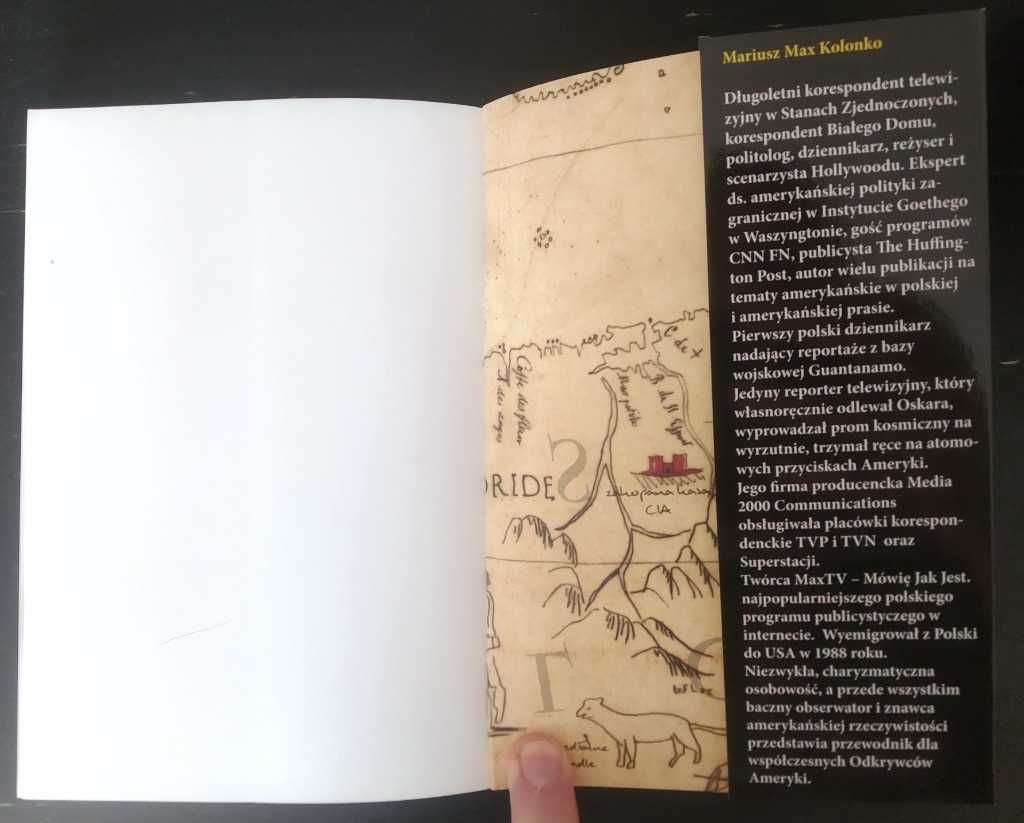 C de X
Coste des fleur
A des anges
Mar pequeño
R de St Esprit
S
ORIDE
zakopana kasa
CIA
T
Mariusz Max Kolonko
Długoletni korespondent telewi-
zyjny w Stanach Zjednoczonych,
korespondent Białego Domu,
politolog, dziennikarz, reżyser i
scenarzysta Hollywoodu. Ekspert
ds. amerykańskiej polityki za-
granicznej w Instytucie Goethego
w Waszyngtonie, gość programów
CNN FN, publicysta The Huffing-
ton Post, autor wielu publikacji na
tematy amerykańskie w polskiej
i amerykańskiej prasie.
Pierwszy polski dziennikarz
nadający reportaże z bazy
wojskowej Guantanamo.
Jedyny reporter telewizyjny, który
własnoręcznie odlewał Oskara,
wyprowadzał prom kosmiczny na
wyrzutnie, trzymał ręce na atomo-
wych przyciskach Ameryki.
Jego firma producencka Media
2000 Communications
obsługiwała placówki korespon-
denckie TVP i TVN oraz
Superstacji.
Twórca MaxTV – Mówię Jak Jest.
najpopularniejszego polskiego
programu publicystyczego w
internecie. Wyemigrował z Polski
do USA w 1988 roku.
Niezwykła, charyzmatyczna
osobowość, a przede wszystkim
baczny obserwator i znawca
amerykańskiej rzeczywistości
przedstawia przewodnik dla
współczesnych Odkrywców
Ameryki.